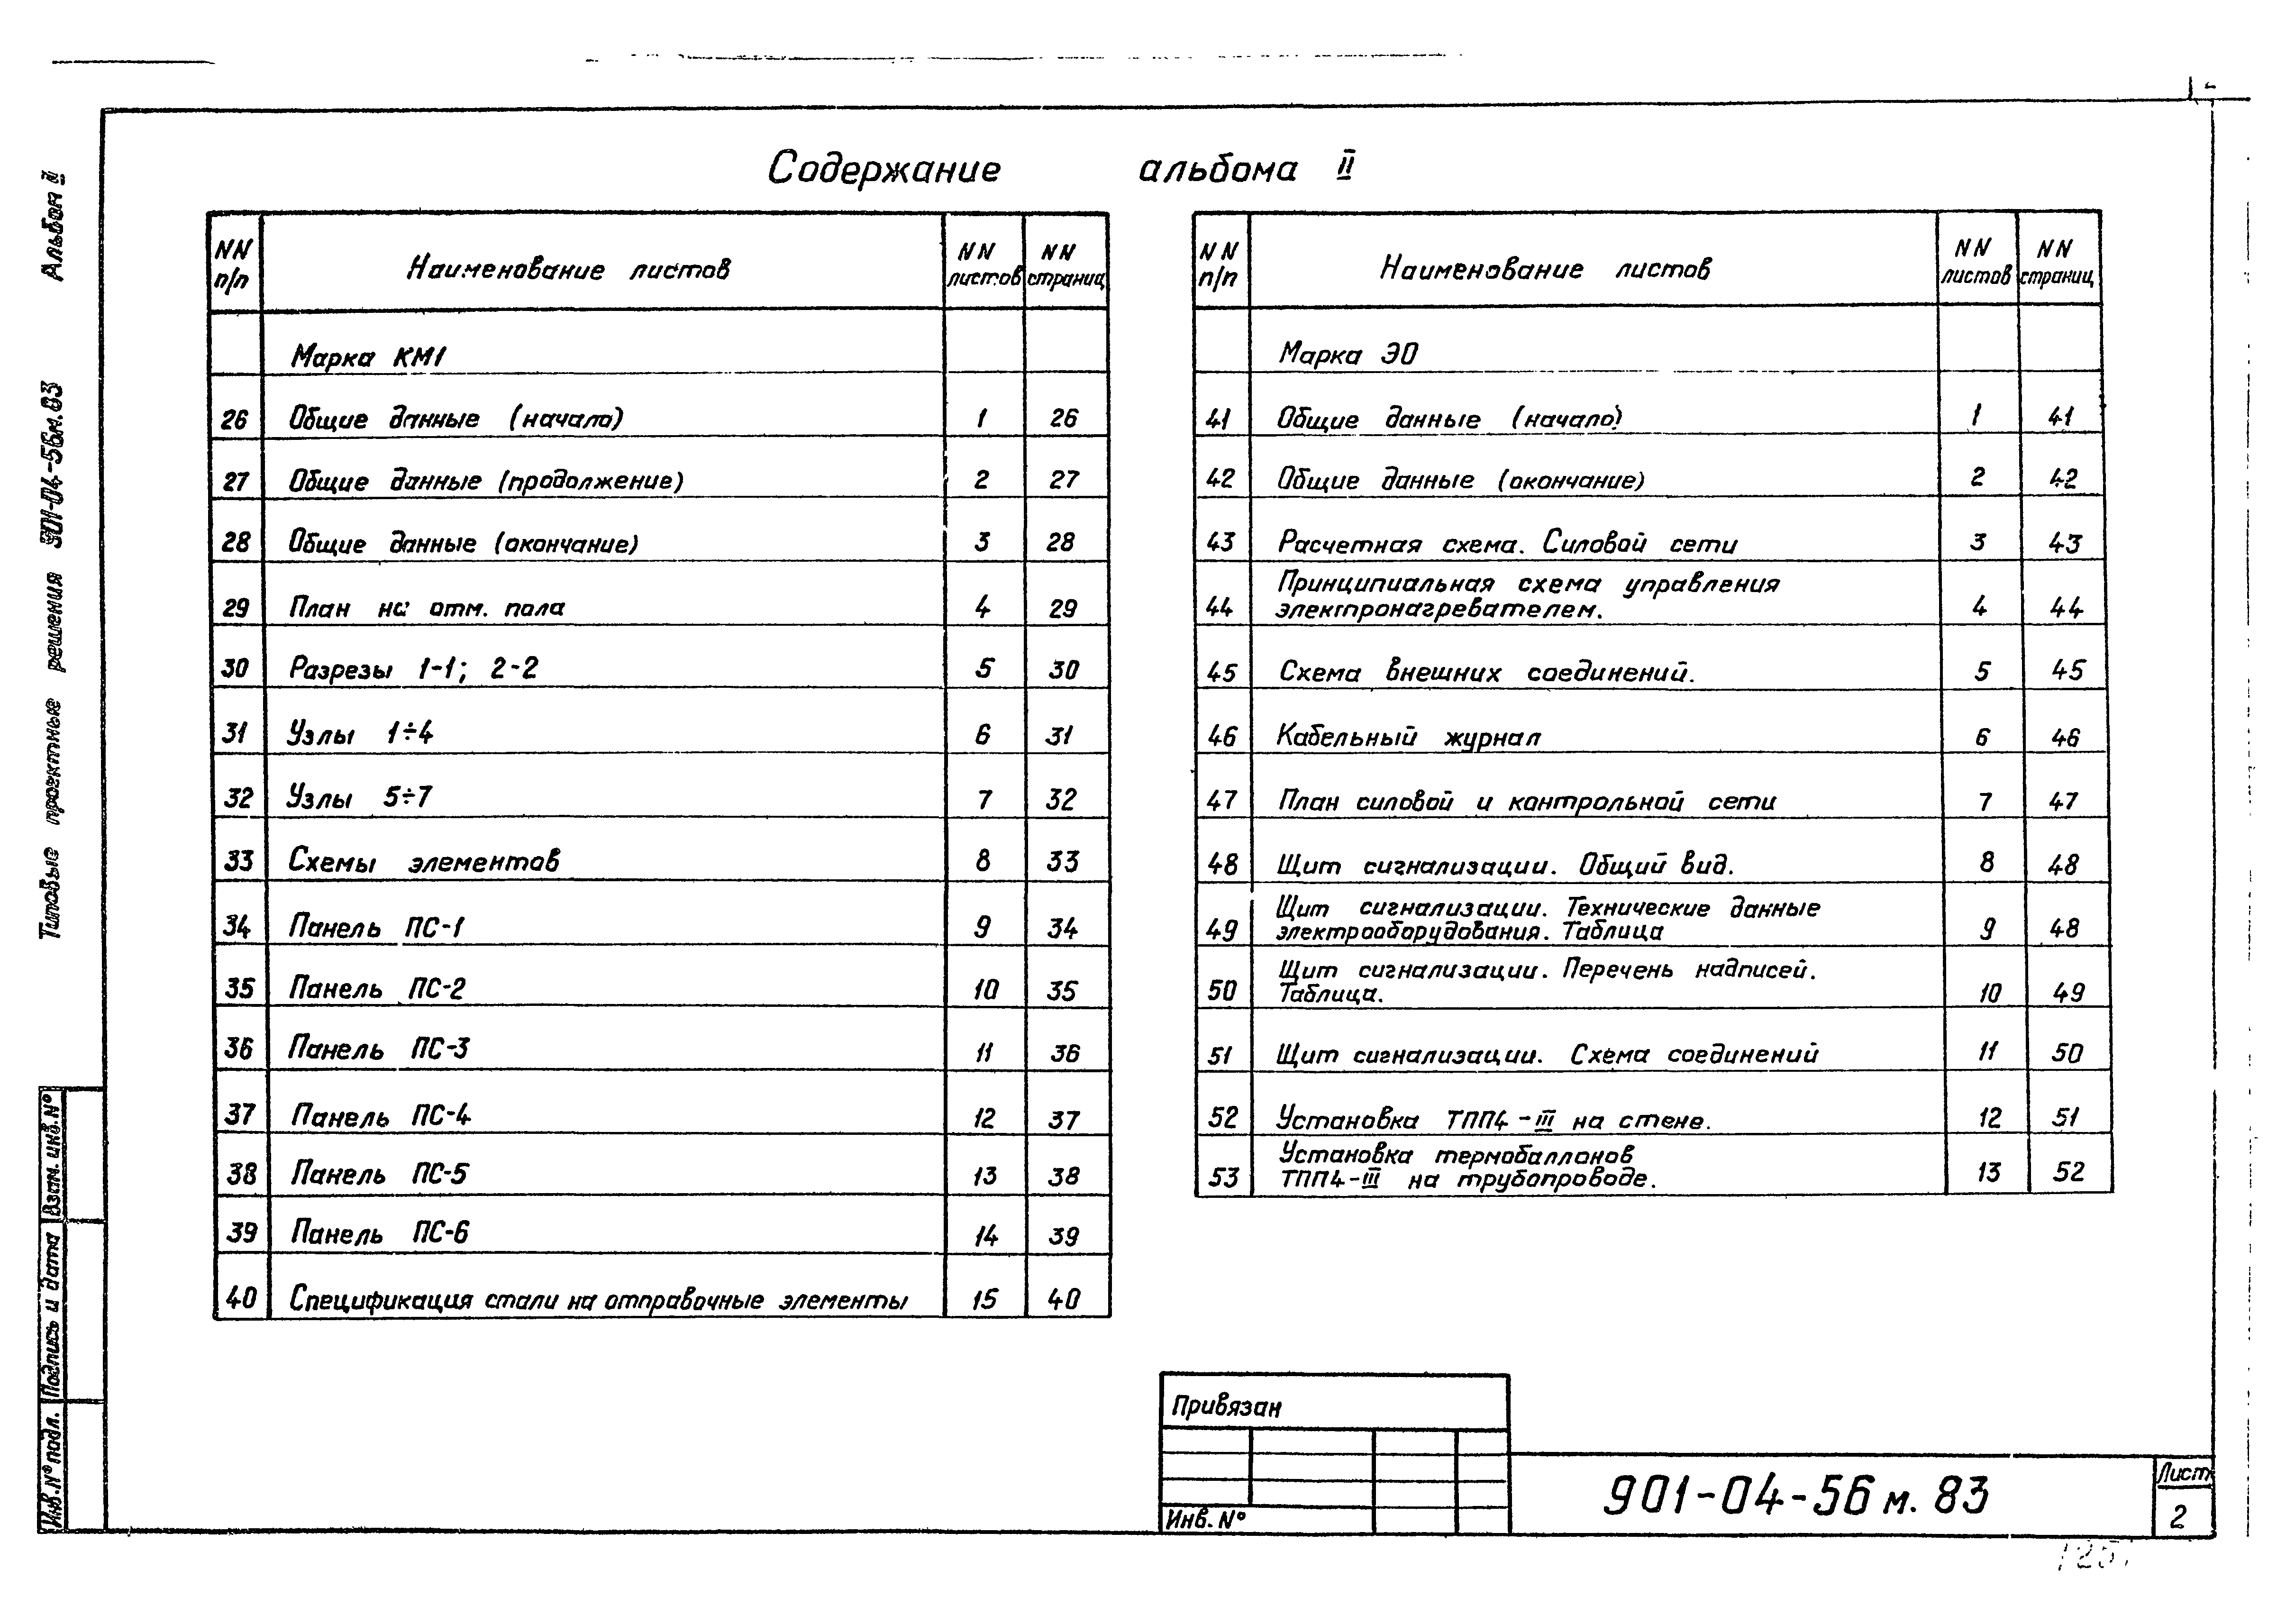 Содержание альбома II
NN п/п Наименование листов NN листов NN страниц
Марка КМ1
26 Общие данные (начало) 1 26
27 Общие данные (продолжение) 2 27
28 Общие данные (окончание) 3 28
29 План на отм. пола 4 29
30 Разрезы 1-1; 2-2 5 30
31 Узлы 1÷4 6 31
32 Узлы 5÷7 7 32
33 Схемы элементов 8 33
34 Панель ПС-1 9 34
35 Панель ПС-2 10 35
36 Панель ПС-3 11 36
37 Панель ПС-4 12 37
38 Панель ПС-5 13 38
39 Панель ПС-6 14 39
40 Спецификация стали на отправочные элементы 15 40
NN п/п Наименование листов NN листов NN страниц
Марка ЭО
41 Общие данные (начало) 1 41
42 Общие данные (окончание) 2 42
43 Расчетная схема. Силовой сети 3 43
Принципиальная схема управления
44 электронагревателем. 4 44
45 Схема внешних соединений. 5 45
46 Кабельный журнал 6 46
47 План силовой и контрольной сети 7 47
48 Щит сигнализации. Общий вид. 8 48
Щит сигнализации. Технические данные
49 электрооборудования. Таблица 9 48
Щит сигнализации. Перечень надписей.
50 Таблица. 10 49
51 Щит сигнализации. Схема соединений 11 50
52 Установка ТПП4-III на стене. 12 51
Установка термобаллонов
53 ТПП4-III на трубопроводе. 13 52
Привязан
Инв. N°
901-04-56 м. 83
Лист
2
Типовые проектные решения 901-04-56м.83 Альбом II
Взам. инв. N°
Подпись и дата
Инв. N° подл.